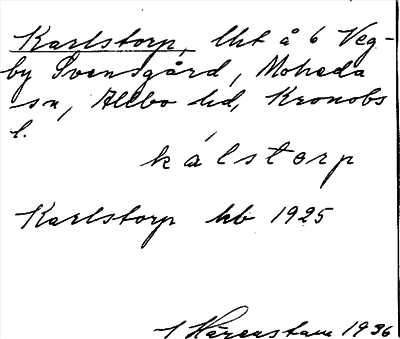 Karlstorp, lht å 6 Veg-
by Svensgård, Moheda
sn, Allbo hd, Kronobs
l.
kálstorp
Karlstorp hb 1925
1936